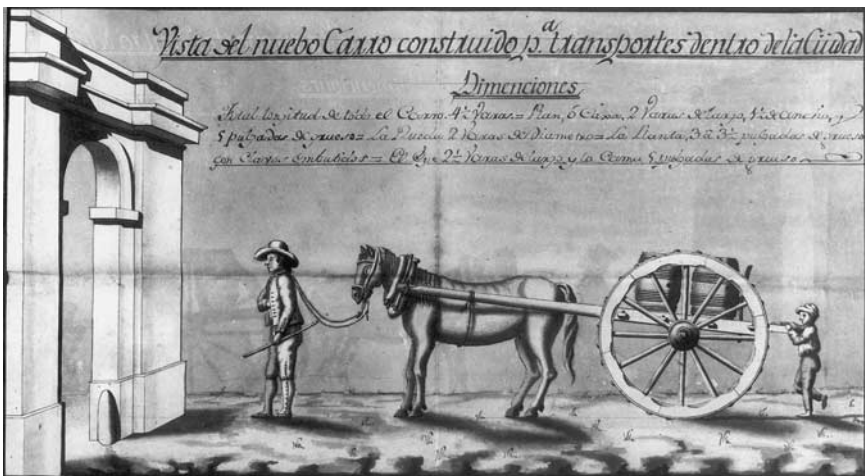 Vista del nuebo Carro construido p.a transportes dentro de la Ciudad
Dimenciones
Total longitud de todo el Carro. 4½ Varas = Plan, ó Caxa, 2 Varas de largo, 1½ de ancho, y
5 pulgadas de grueso = La Rueda 2 Varas de Diametro = La Llanta, 3 a 3½ pulgadas de grueso
con Clavos embutidos = El Exe 2½ Varas de largo y la 5 pulgadas de grueso